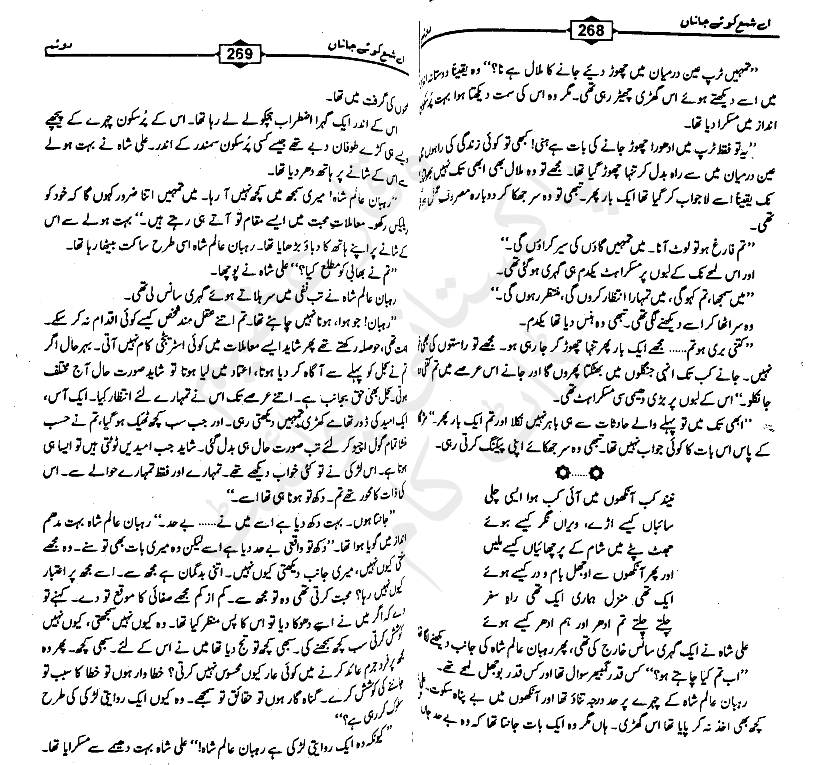 اے شمع کوئے جاناں
268
”تمہیں ٹرپ عین درمیان میں چھوڑ دیئے جانے کا ملال ہے نا؟“ وہ یقیناً دوستانہ انداز
میں اسے دیکھتے ہوئے اس گھڑی چھیڑ رہی تھی۔ مگر وہ اس کی سمت دیکھتا ہوا بہت پرسکون
انداز میں مسکرا دیا تھا۔
”یہ تو فقط ٹرپ میں ادھورا چھوڑ جانے کی بات ہے ہنی! کبھی تو کوئی زندگی کی راہوں
عین درمیان میں سے راہ بدل کر تنہا چھوڑ گیا تھا۔ مجھے تو وہ ملال بھی ابھی تک نہیں بھولا
تک یقیناً اسے لاجواب کر گیا تھا ایک بار پھر۔ تبھی تو وہ سر جھکا کر دوبارہ مصروف
تھی۔
”تم فارغ ہو تو لوٹ آنا۔ میں تمہیں گاؤں کی سیر کراؤں گی۔“
اور اس لمحے تک کے لبوں پر مسکراہٹ یکدم ہی گہری ہو گئی تھی۔
”میں سمجھا، تم کہو گی، میں تمہارا انتظار کروں گی، منتظر رہوں گی۔“
وہ سر اٹھا کر اسے دیکھنے لگی تھی۔ تبھی وہ ہنس دیا تھا یکدم۔
”کتنی بری ہو تم...... مجھے ایک بار پھر تنہا چھوڑ کر جا رہی ہو۔ مجھے تو راستوں کی بھی
نہیں۔ جانے کب تک انہی جنگلوں میں بھٹکتا پھروں گا اور جانے اس عرصے میں تم کتنی
جا نکلو۔“ اس کے لبوں پر بڑی دھیمی سی مسکراہٹ تھی۔
”ابھی تک میں تو پہلے والے حادثات سے ہی باہر نہیں نکلا اور تم ایک بار پھر۔“
کے پاس اس بات کا کوئی جواب نہیں تھا۔ تبھی وہ سر جھکائے اپنی پیکنگ کرتی رہی۔
نیند کب آنکھوں میں آئی کب ہوا ایسی چلی
سائباں کیسے اڑے، ویراں نگر کیسے ہوئے
جھٹ پٹے میں شام کے پرچھائیاں کیسے ملیں
اور پھر آنکھوں سے اوجھل بام و در کیسے ہوئے
ایک تھی منزل ہماری ایک تھی راہِ سفر
چلتے چلتے تم ادھر اور ہم ادھر کیسے ہوئے
علی شاہ نے ایک گہری سانس خارج کی تھی، پھر رہبان عالم شاہ کی جانب دیکھنے لگا تھا
”اب تم کیا چاہتے ہو؟“ کس قدر گمبھیر سوال تھا اور کس قدر بوجھل لمحے تھے۔
رہبان عالم شاہ کے چہرے پر حد درجہ تناؤ تھا اور آنکھوں میں بے پناہ سکوت۔ علی
کچھ بھی اخذ نہ کر پایا تھا اس گھڑی۔ ہاں مگر وہ ایک بات جانتا تھا کہ وہ بے حد
اے شمع کوئے جاناں
269
دوئم
کی گرفت میں تھا۔
اس کے اندر ایک گہرا اضطراب ہچکولے لے رہا تھا۔ اس کے پرسکون چہرے کے پیچھے
ویسے ہی کڑے طوفان دبے تھے جیسے کسی پرسکون سمندر کے اندر۔ علی شاہ نے بہت ہولے
سے اس کے شانے پر ہاتھ دھر دیا تھا۔
”رہبان عالم شاہ! میری سمجھ میں کچھ نہیں آ رہا۔ میں تمہیں اتنا ضرور کہوں گا کہ خود کو
ریلیکس رکھو۔ معاملاتِ محبت میں ایسے مقام تو آتے ہی رہتے ہیں۔“ بہت ہولے سے اس
کے شانے پر اپنے ہاتھ کا دباؤ بڑھایا تھا۔ رہبان عالم شاہ اسی طرح ساکت بیٹھا رہا تھا۔
”تم نے بھابی کو مطلع کیا؟“ علی شاہ نے پوچھا۔
رہبان عالم شاہ نے تب نفی میں سر ہلاتے ہوئے گہری سانس لی تھی۔
”رہبان! جو ہوا، ہونا نہیں چاہئے تھا۔ تم اتنے عقل مند شخص کیسے کوئی اقدام نہ کر سکے۔
تھی، حوصلہ رکھتے تھے پھر شاید ایسے معاملات میں کوئی اسٹریٹجی کام نہیں آتی۔ بہرحال اگر
تم نے کجل کو پہلے سے آگاہ کر دیا ہوتا، اعتماد میں لیا ہوتا تو شاید صورت حال آج مختلف
ہوتی۔ کجل بھی حق بجانب ہے۔ اتنے عرصے تک اس نے تمہارے لئے انتظار کیا۔ ایک آس،
ایک امید کی ڈور تھامے کھڑی تمہیں دیکھتی رہی۔ اور جب سب کچھ ٹھیک ہو گیا، تم نے حسب
منشا تمام گول اچیو کر لئے تب صورت حال ہی بدل گئی۔ شاید جب امیدیں ٹوٹتی ہیں تو ایسا ہی
ہوتا ہے۔ اس لڑکی نے تو کئی خواب دیکھے تھے۔ تمہارے اور فقط تمہارے حوالے سے۔ اس
کی ذات کا محور تھے تم۔ دکھ تو ہونا ہی تھا اسے۔“
”جانتا ہوں۔ بہت دکھ دیا ہے اسے میں نے...... بے حد۔“ رہبان عالم شاہ بہت مدھم
انداز میں گویا ہوا تھا۔ ”دکھ تو واقعی بے حد دیا ہے اسے لیکن وہ میری بات بھی تو سنے۔ وہ مجھے
سنتی کیوں نہیں، میری جانب دیکھتی کیوں نہیں۔ اتنی بدگمان ہے مجھ سے۔ اسے مجھ پر اعتبار
کیوں نہیں رہا؟ محبت کرتی تھی وہ تو مجھ سے۔ کم از کم مجھے صفائی کا موقع تو دے۔ کہنے تو
دے کہ اگر میں نے اسے دھوکا دیا تو اس کا پس منظر کیا تھا۔ وہ کیوں نہیں سمجھتی، کیوں نہیں
کوشش کرتی سب کچھ سمجھنے کی۔ سبھی کچھ تو تج دیا تھا میں نے اس کے لئے۔ سبھی کچھ۔ پھر وہ
مجھ پر فرد جرم عائد کرنے میں کوئی عار کیوں محسوس نہیں کرتی؟ خطاوار ہوں تو خطا کا سبب تو
جاننے کی کوشش کرے۔ گناہ گار ہوں تو حقائق تو سمجھے۔ وہ کیوں ایک روایتی لڑکی کی طرح
سلوک کر رہی ہے؟“
”کیونکہ وہ ایک روایتی لڑکی ہے رہبان عالم شاہ!“ علی شاہ بہت دھیمے سے مسکرایا تھا۔